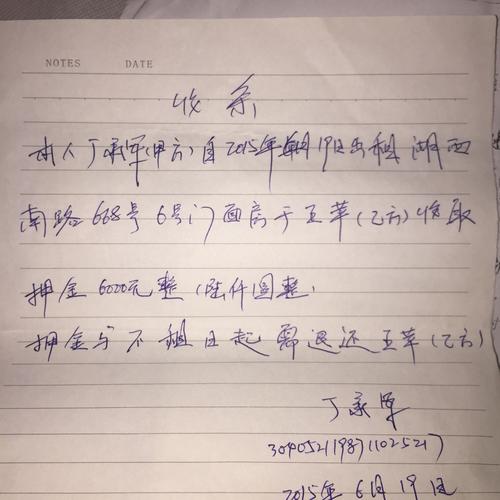 NOTES DATE
收条
本人丁承军(甲方)自2015年 月19日出租湖西
南路668号6号门面房于王苹(乙方)收取
押金6000元整(陆仟圆整.
押金与不租日起需退还王苹(乙方)
丁承军
2015年6月19日